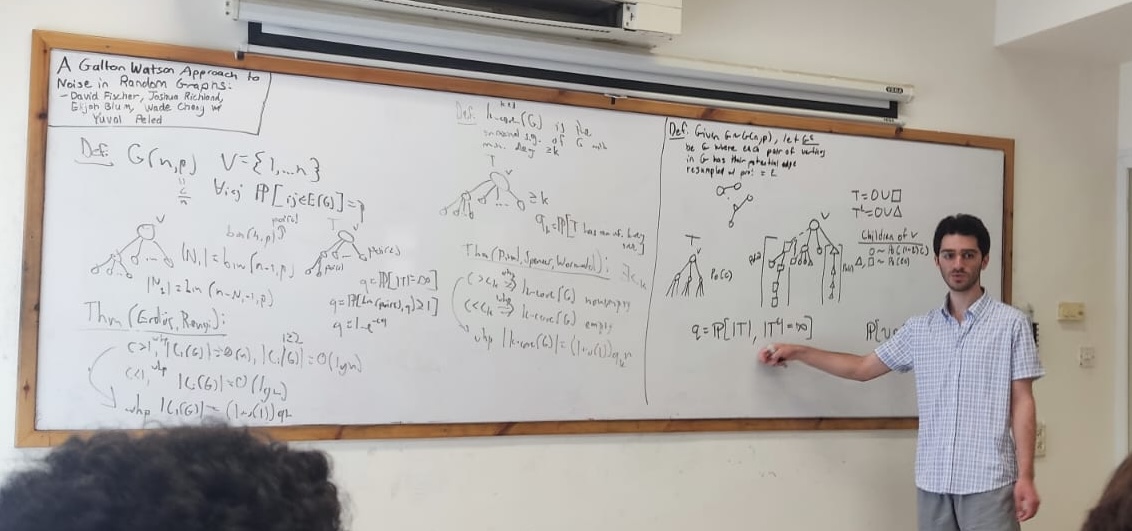 A Galton Watson Approach to
Noise in Random Graphs:
- David Fischer, Joshua Richland,
Elijah Blum, Wade Chang w/
Yuval Peled
Def: G(n,p) V={1,...n}
∀i,j P[ij∈E(G)]=p
bin(n,p)
V
|N₁|=bin(n-1,p)
|N₂|=bin(n-N₁-1,p)
T
Poi(c)
q=P[|T|=∞]
q=1-e^{-cq}
Thm (Erdős, Renyi):
whp
|C₁(G)|=O(lgn)
whp |C₁(G)|=(1+o(1))qn
Def: k-core(G) is the
maximal s.g. of G with
min. deg ≥k
T
≥k
Thm (Pittel, Spencer, Wormald): ∃c_k
c>c_k ⇒ k-core(G) nonempty
c<c_k ⇒ k-core(G) empty
whp |k-core(G)|=(1+o(1))q_k n
Def: Given G~G(n,p), let G^ε
be G where each pair of vertices
in G has their potential edge
resampled w/ prob = ε
T=O∪□
T^ε=O∪Δ
Children of V
O ~ Po((1-ε)c)
Δ,□ ~ Po(εc)
T
V
Po(c)
V
q=P[|T|, |T^ε|=∞]